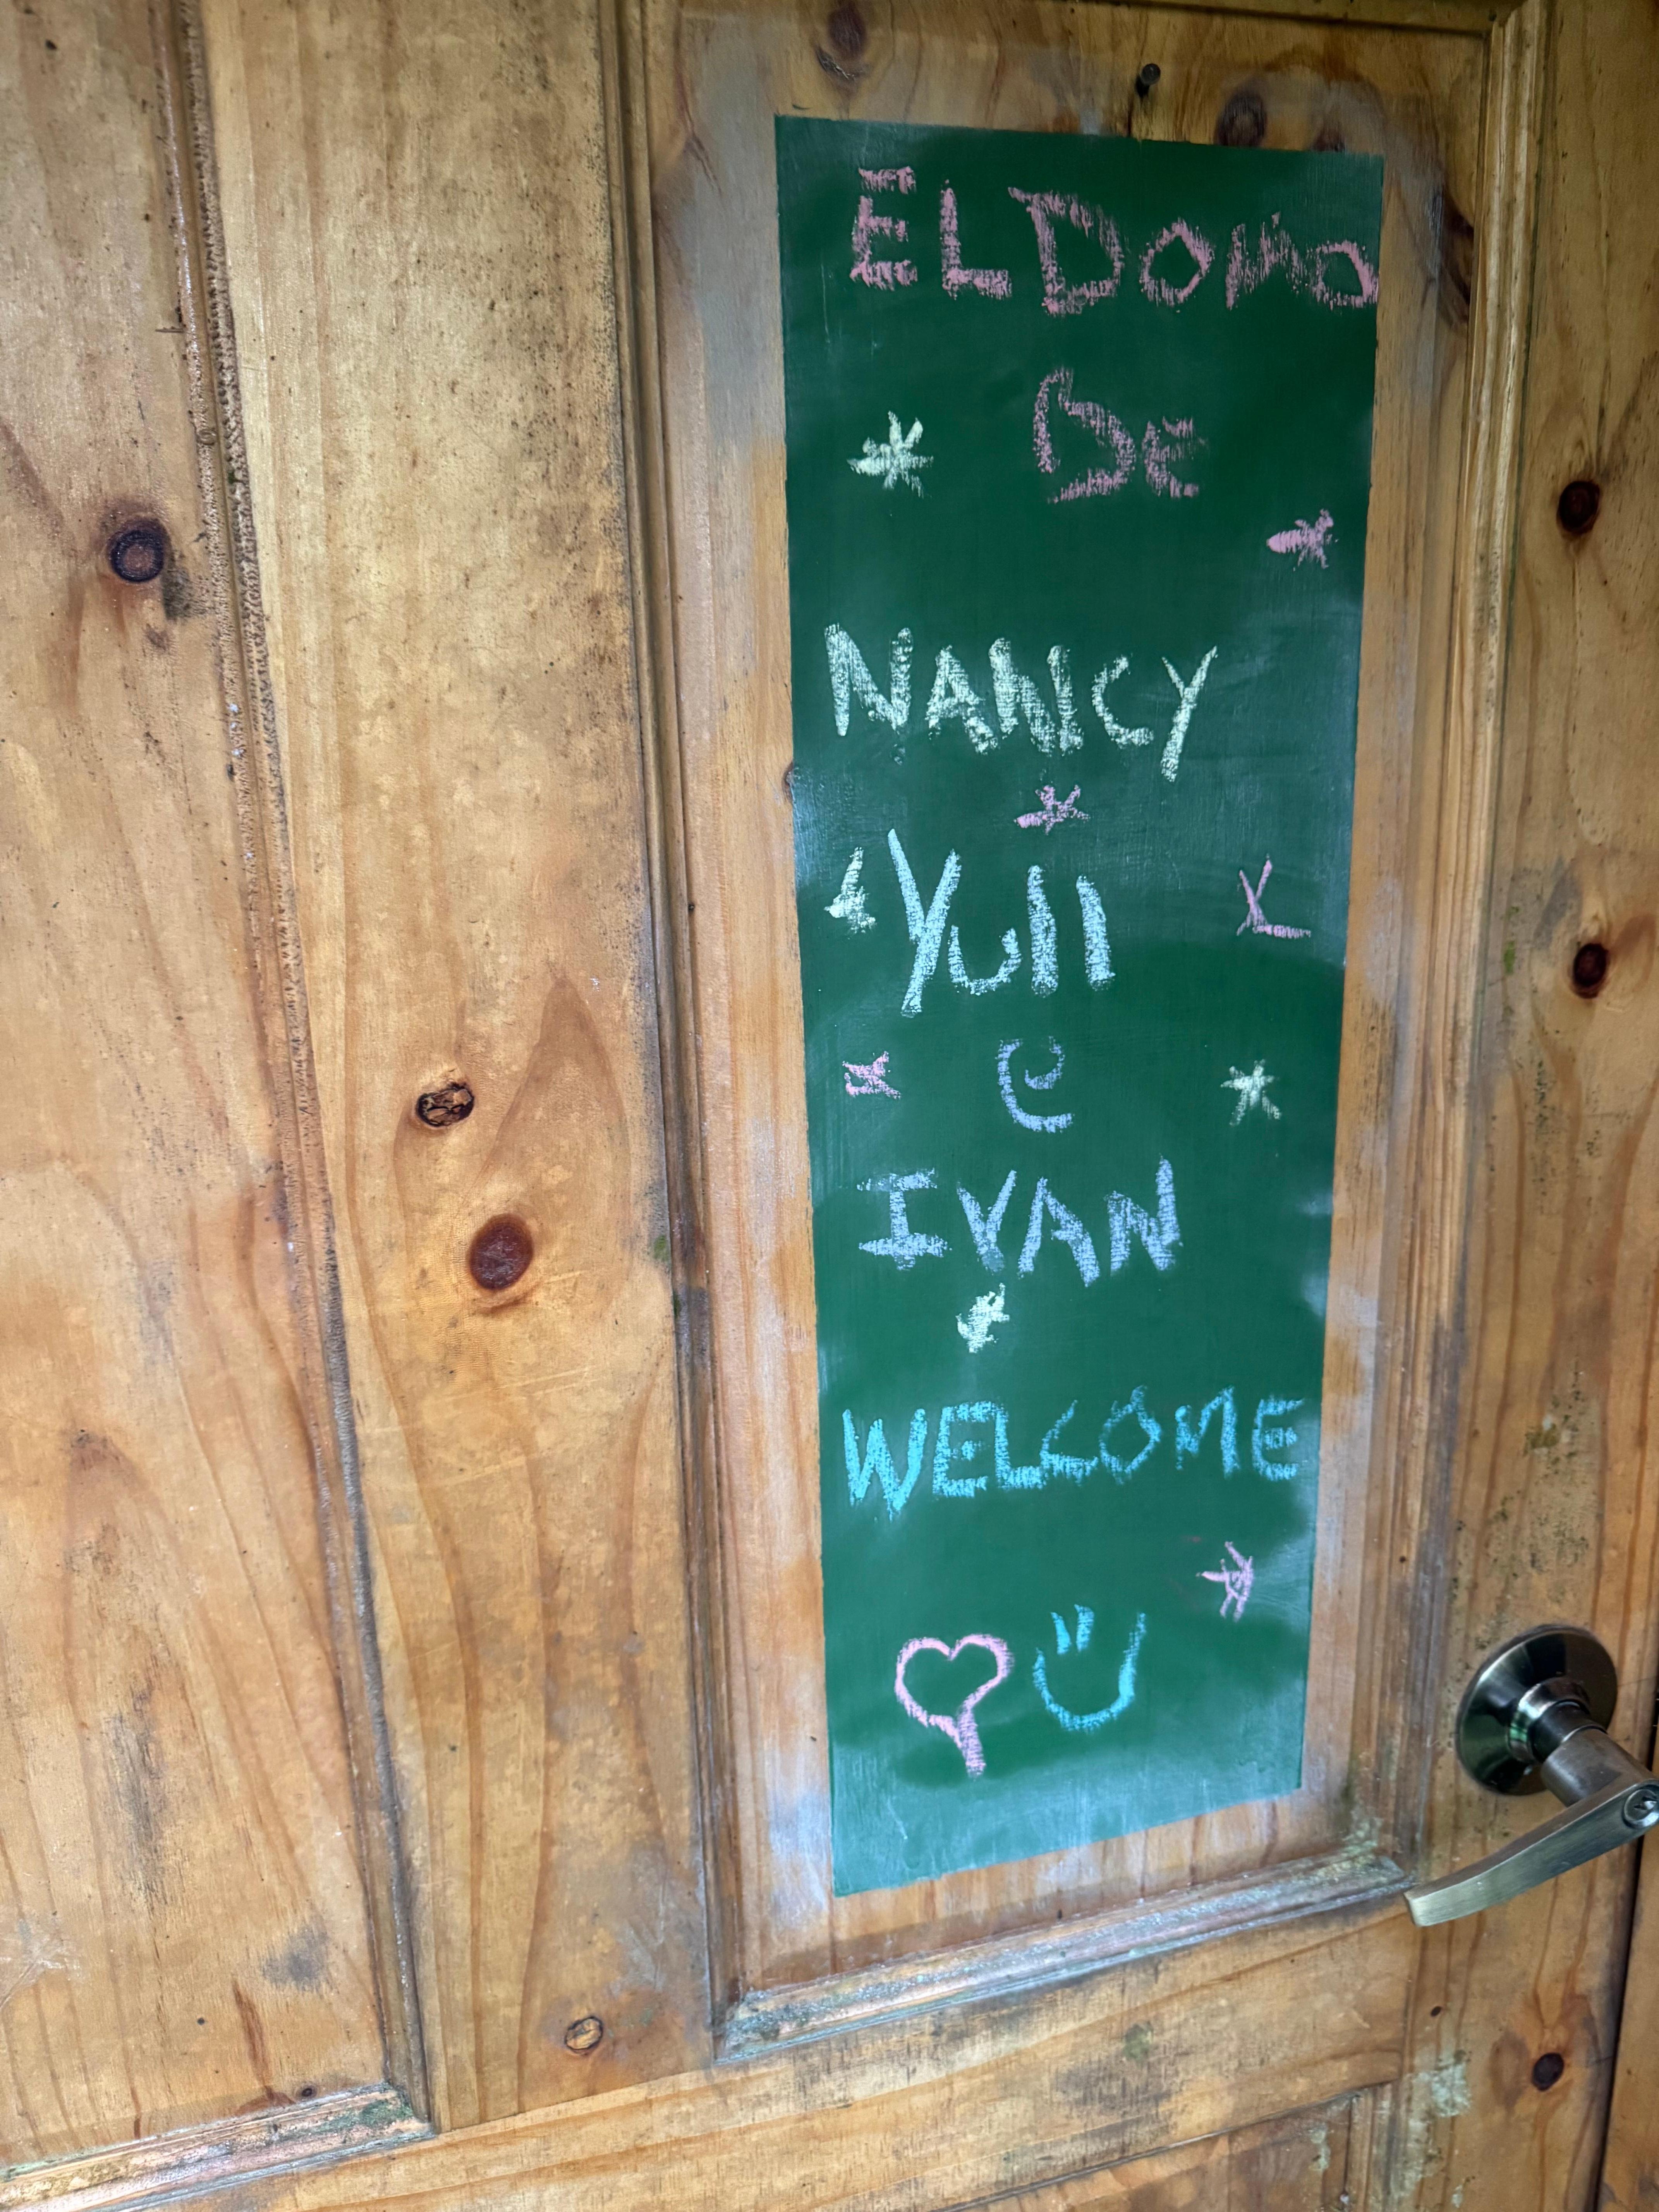 EL DOMO
DE
NANCY
Yuli
e
IVAN
WELCOME